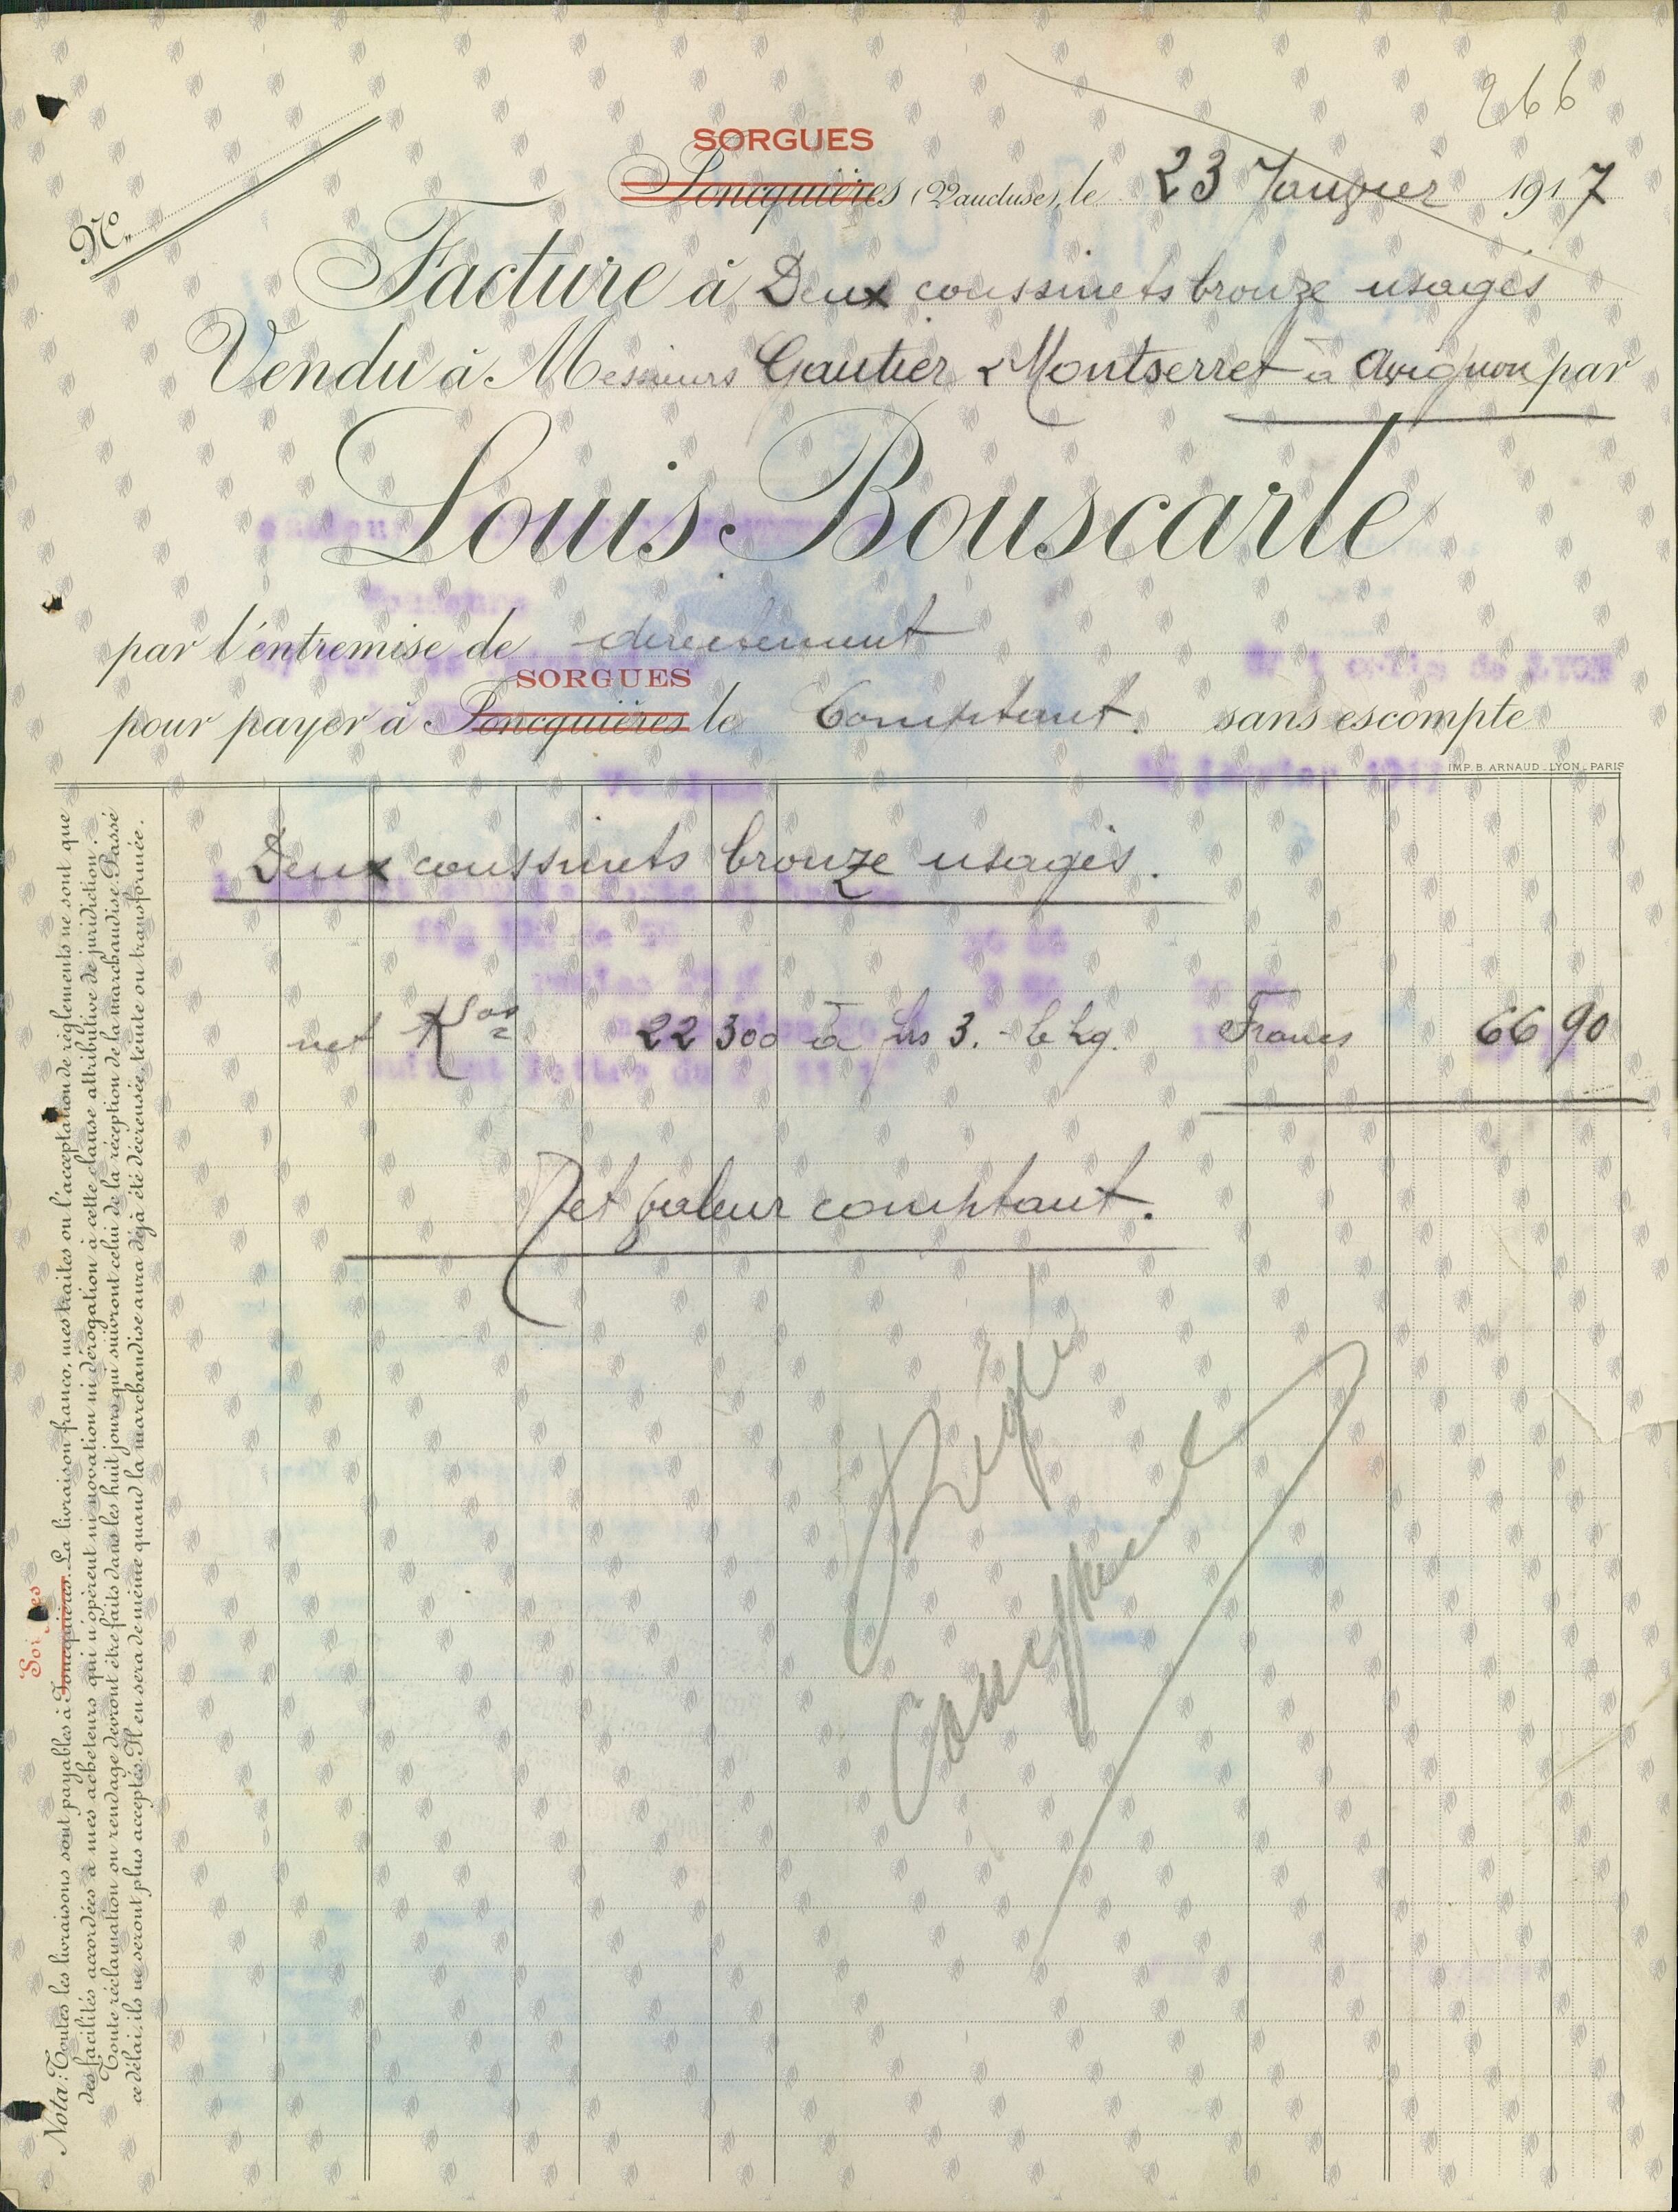 266
SORGUES
Joncquières (Vaucluse), le 23 Janvier 1917
No
Facture à Deux coussinets bronze usagés
Vendu à Messieurs Gautier & Montserret à Avignon par
Louis Bouscarle
par l'entremise de directement
SORGUES
pour payer à Joncquières le Comptant. sans escompte
IMP. B. ARNAUD _ LYON _ PARIS
Deux coussinets bronze usagés.
net Kgos 22 300 à frs 3. - le kg. Francs 66 90
Net valeur comptant.
Réglé
Comptant
Sorgues
Nota: Toutes les livraisons sont payables à Joncquières. La livraison franco, mes traites ou l'acceptation de règlements ne sont que
des facilités accordées à mes acheteurs qui n'opèrent ni novation ni dérogation à cette clause attributive de juridiction.
Toute réclamation ou rendage devront être faits dans les huit jours qui suivront celui de la réception de la marchandise. Passé
ce délai, ils ne seront plus acceptés. Il en sera de même quand la marchandise aura déjà été décreusée, teinte ou transformée.